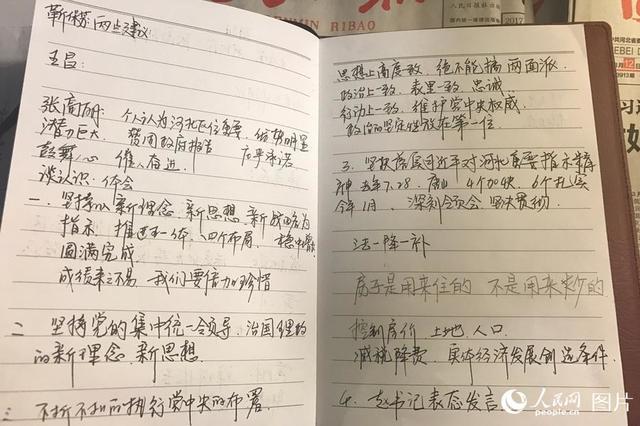 RIBAO
人民日报社出版
2017
靳荪:两点建议:
王昌:
张高丽: 个人认为河北地位重要,优势明显
潜力巨大 赞同政府报告 庄严承诺
鼓舞人心 催人奋进
谈认识、体会
一、坚持以新理念 新思想 新战略为
指示 推进五一体、四个布局、稳中
圆满完成
成绩来之不易 我们要倍加珍惜
二、坚持党的集中统一领导,治国理政
的新理念、新思想
三 不折不扣的执行党中央的布署
思想上高度一致,绝不能搞两面派
政治上一致,表里一致,忠诚
行动上一致,维护党中央权威
政治的坚定性放在第一位
3、坚扶落实习近平对河北重要指示精
神 去年7.28、唐山 4个加快,6个扎实
今年1月 深刻领会 坚决贯彻
三去一降一补
房子是用来住的 不是用来炒的
控制房价 土地、人口
减税降费、实体经济发展创造条件
4、赵书记表态发言
人民网 图片
people.cn